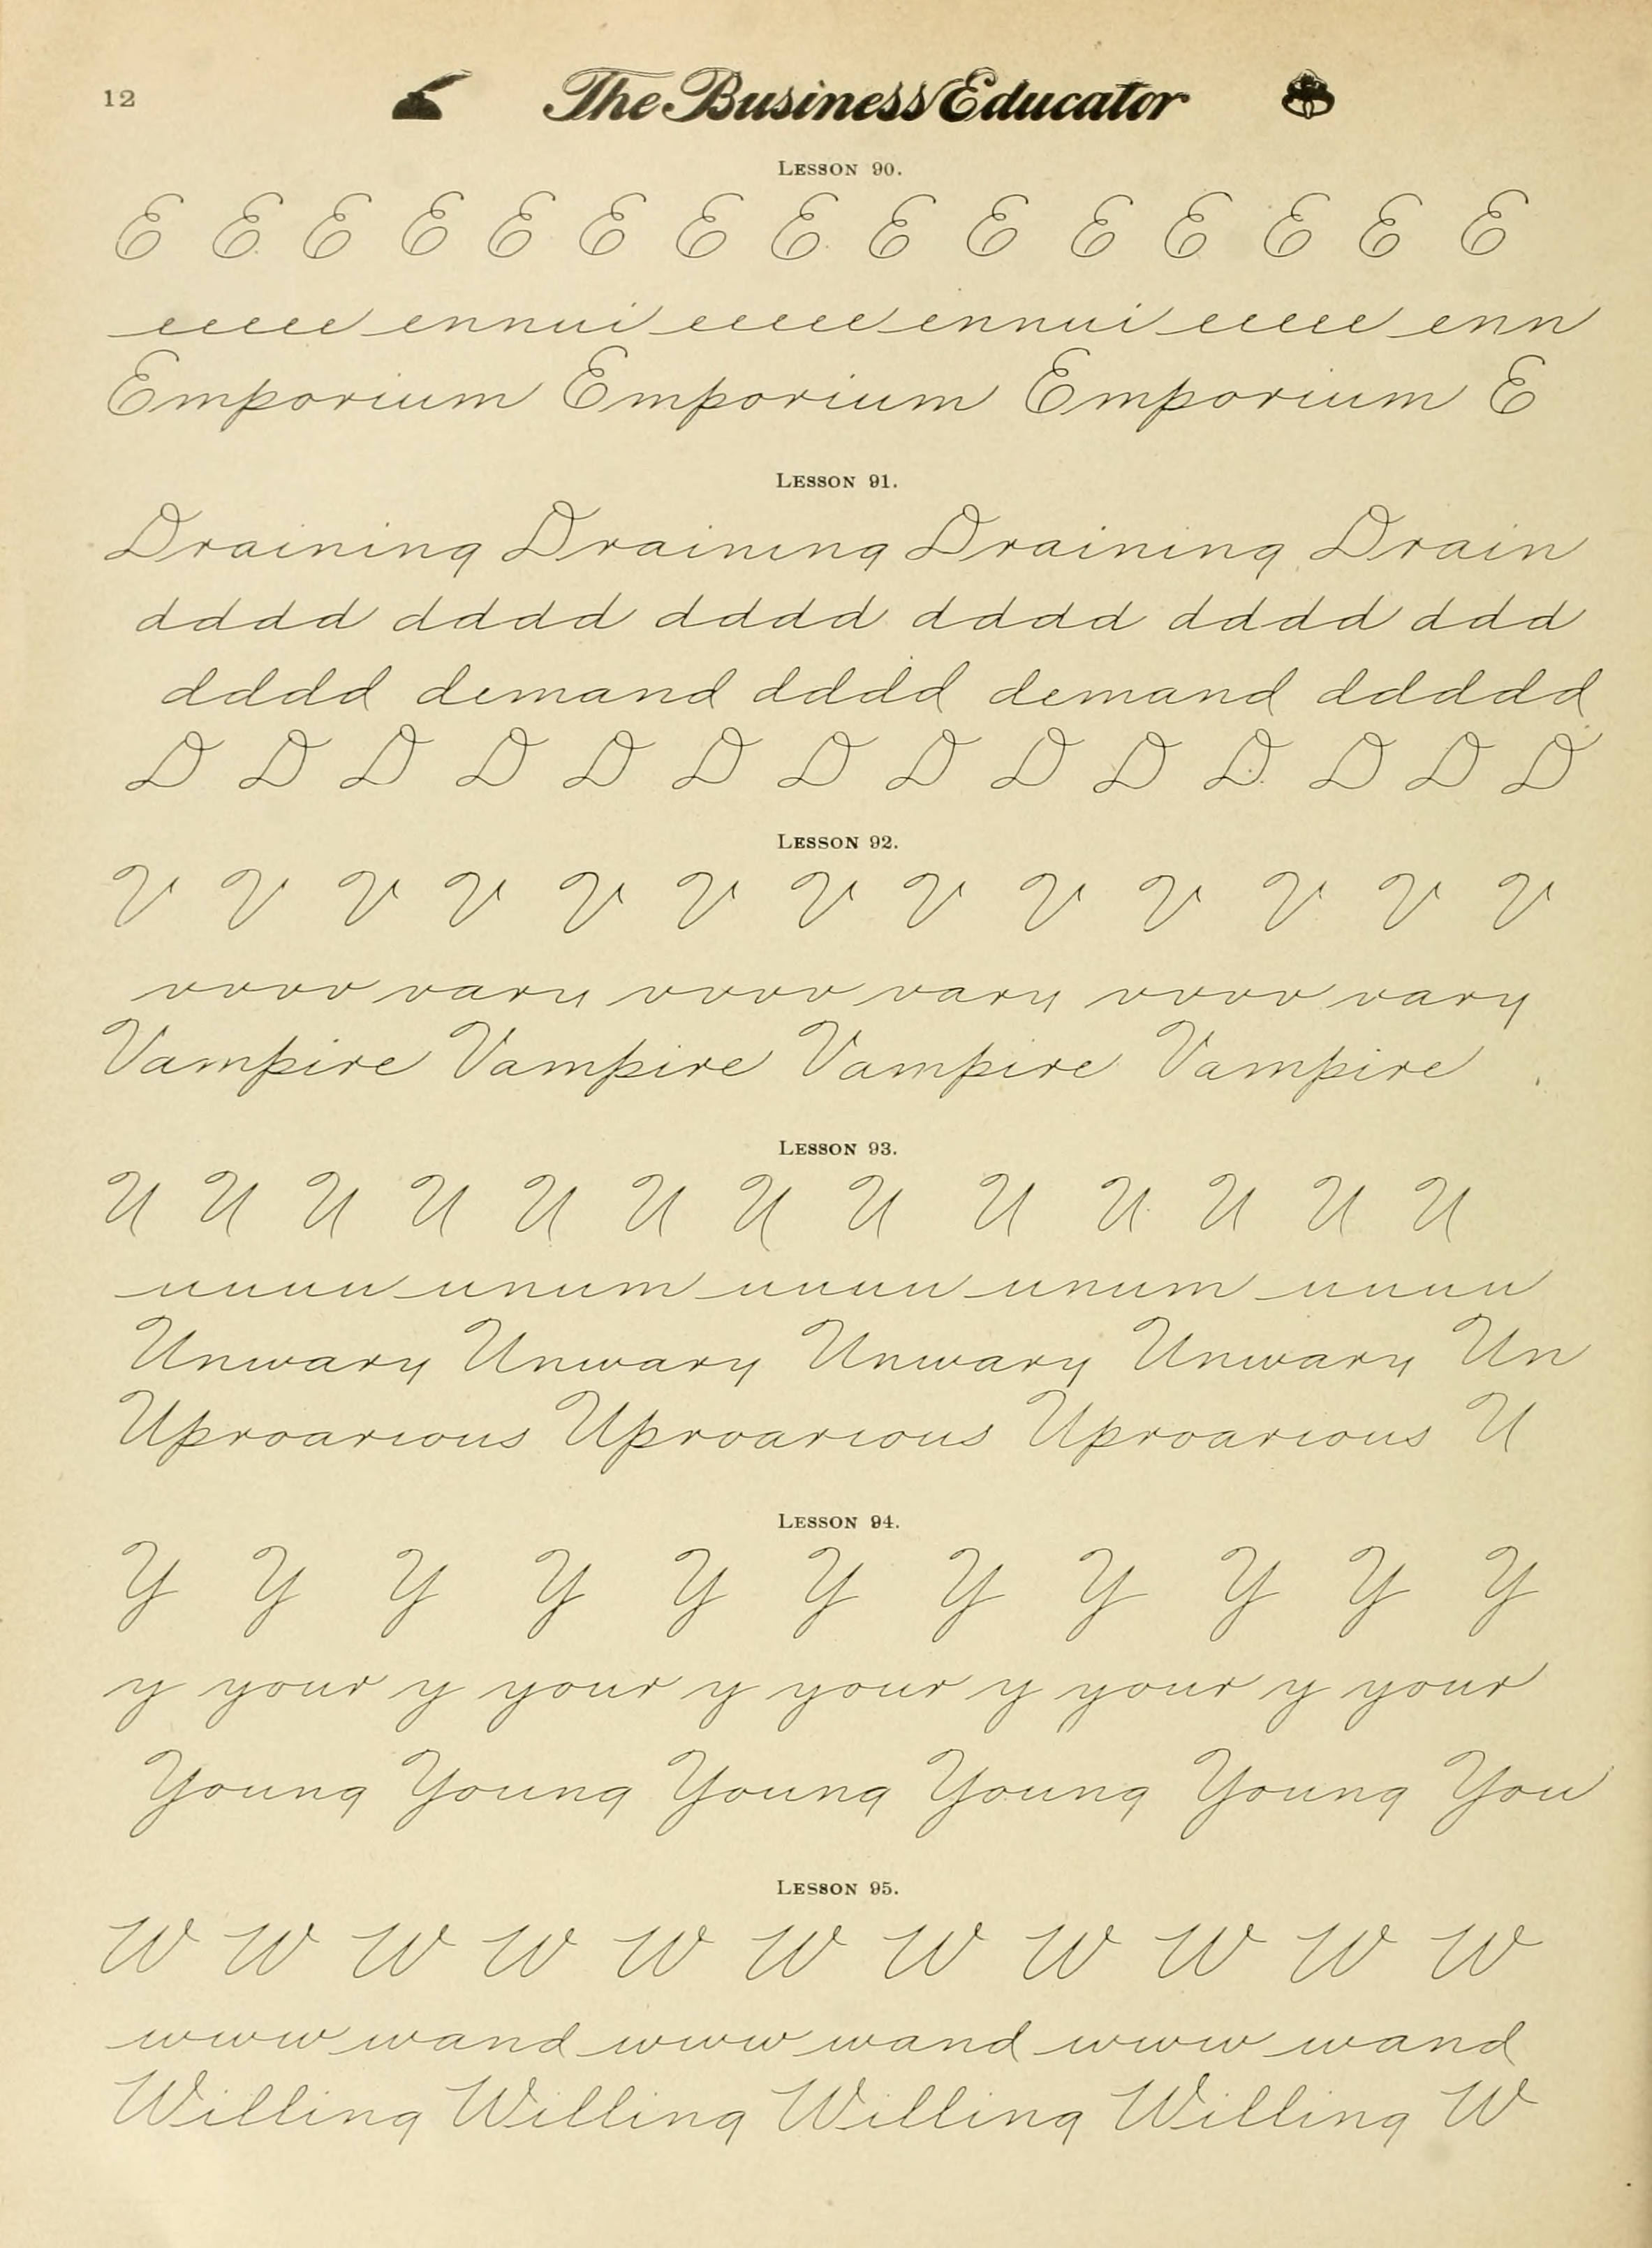 12 The Business Educator
LESSON 90.
E E E E E E E E E E E E E E E
eeeee ennui eeeee ennui eeeee enn
Emporium Emporium Emporium E
LESSON 91.
Draining Draining Draining Drain
dddd dddd dddd dddd dddd ddd
dddd demand dddd demand ddddd
D D D D D D D D D D D D D D
LESSON 92.
V V V V V V V V V V V V V
vvvv vary vvvv vary vvvv vary
Vampire Vampire Vampire Vampire
LESSON 93.
U U U U U U U U U U U U U
uuuu unum uuuu unum uuuu
Unwary Unwary Unwary Unwary Un
Uproarious Uproarious Uproarious U
LESSON 94.
Y Y Y Y Y Y Y Y Y Y Y
y your y your y your y your y your
Young Young Young Young Young You
LESSON 95.
W W W W W W W W W W W
www wand www wand www wand
Willing Willing Willing Willing W